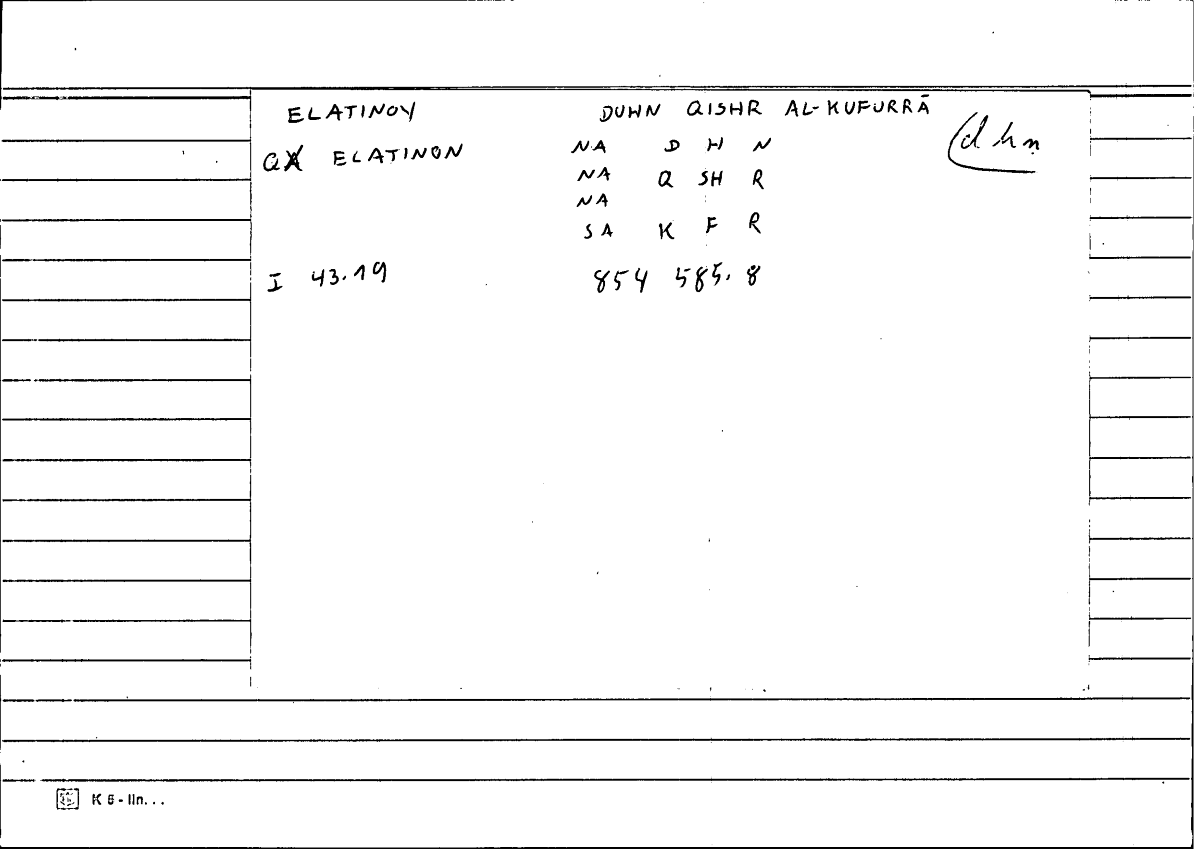 ELATINOY DUHN QISHR AL-KUFURRĀ
(d h n
QX ELATINON NA D H N
NA Q SH R
NA
SA K F R
I 43.19 854 585.8
K 6 - lln...